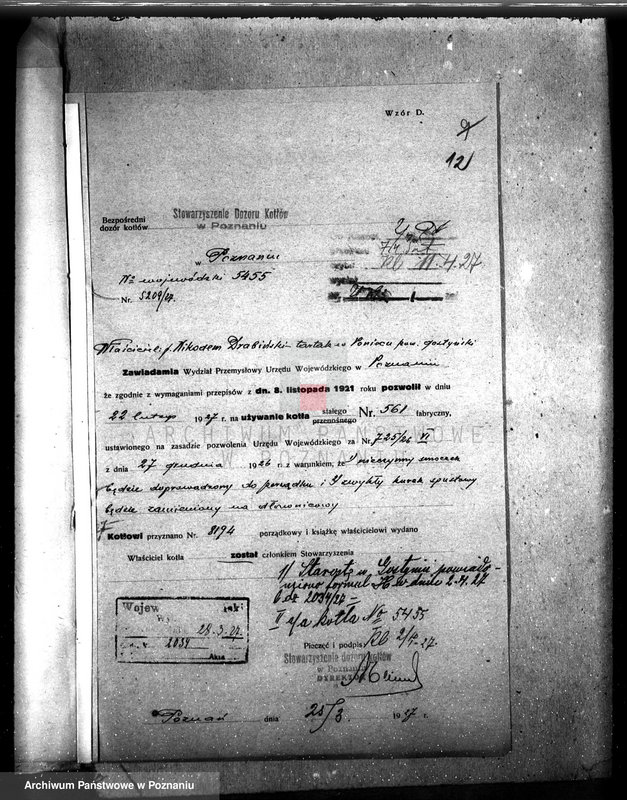 Wzór D.
12
Bezpośredni
dozór kotłów
Stowarzyszenie Dozoru Kotłów
w Poznaniu
w Poznaniu
No wojewódzki 5455
Nr. 5209/27.
11.4.27
Właściciel f. Nikodem Drabiński tartak w Poniecu pow. gostyński
Zawiadamia Wydział Przemysłowy Urzędu Wojewódzkiego w Poznaniu
że zgodnie z wymaganiami przepisów z dn. 8. listopada 1921 roku pozwolił w dniu
22 lutego 1927 r. na używanie kotła stałego przenośnego Nr. 561 fabryczny,
ARCHIWUM PAŃSTWOWE
W POZNANIU
ustawionego na zasadzie pozwolenia Urzędu Wojewódzkiego za Nr. 725/26 VI
z dnia 27 grudnia 1926 r. z warunkiem, że 1/ nieczynny
będzie doprowadzony do porządku i 2/ zwykły kurek spustowy
będzie zamieniony na dławnicowy
Kotłowi przyznano Nr. 8194 porządkowy i książkę właścicielowi wydano
Właściciel kotła został członkiem Stowarzyszenia
1/ Starostę w Gostyniu powiado-
miono formul. H w dniu 2.4.27
L dz 2034/27 =
II a/a kotła No 5455
Wojew ski
28.3.27.
2034
Akta
Pieczęć i podpis
Stowarzyszenie dozoru kotłów
w Poznaniu
DYREKTOR
Poznań dnia 25/3 1927 r.
Archiwum Państwowe w Poznaniu